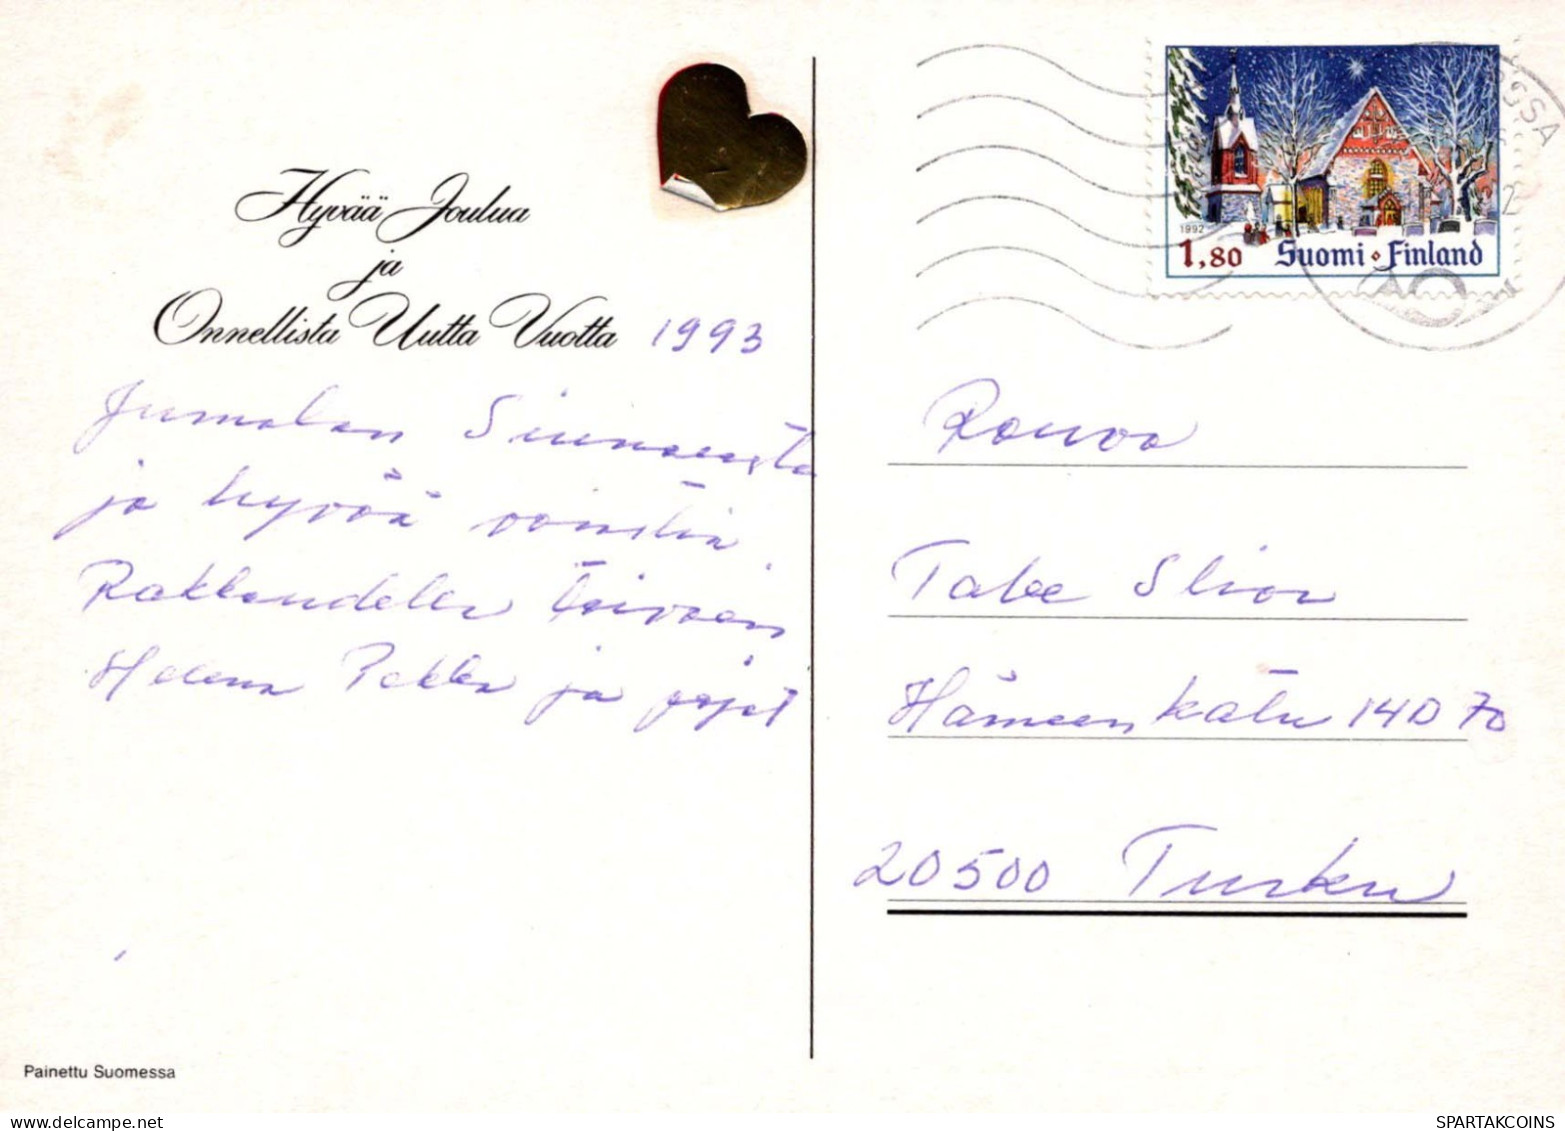 Hyvää Joulua
ja
Onnellista Uutta Vuotta 1993
Jumalan Siunausta
ja hyvää vointia.
Rakkaudella toivoen
Helena Pekka ja pojat
Painettu Suomessa
1992
1,80 Suomi • Finland
SSA
Rouva
Hämeenkatu 14 D 70
20500 Turku
www.delcampe.net
SPARTAKCOINS